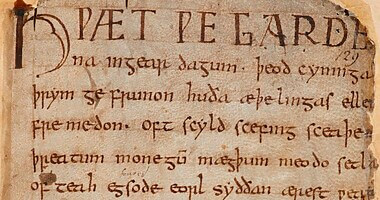 HǷÆT ǷE GARDE
na in gear dagum · þeod cyninga
þrym ge frunon huða æþelingas ellen
fre medon · oft scyld scefing sceaþe
þreatum monegū mægþum meodo setla
of teah egsode eorl syððan ærest